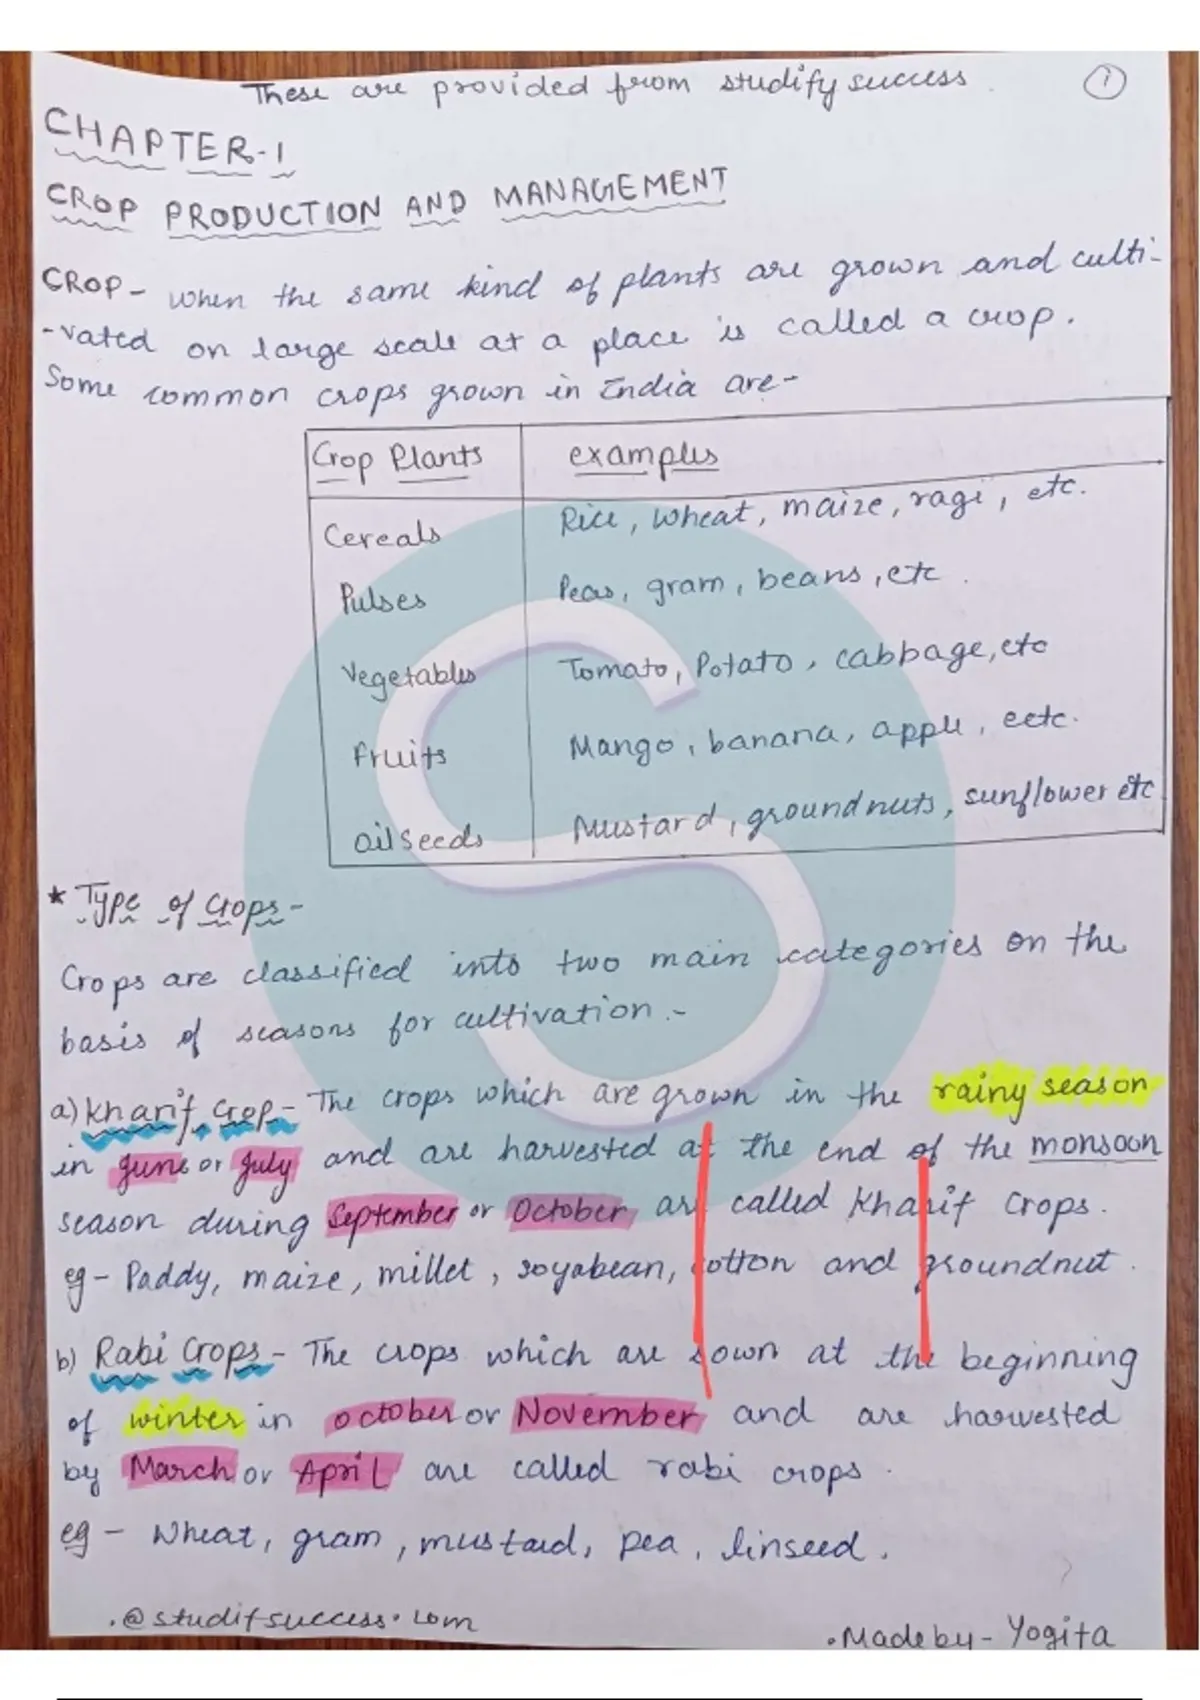 These are provided from studify success
1
CHAPTER-1
CROP PRODUCTION AND MANAGEMENT
CROP- when the same kind of plants are grown and culti-
-vated on large scale at a place is called a crop.
Some common crops grown in India are-
Crop Plants examples
Cereals Rice, wheat, maize, ragi, etc.
Pulses Peas, gram, beans, etc.
Vegetables Tomato, Potato, cabbage, etc
fruits Mango, banana, apple, eetc.
oilseeds Mustard, groundnuts, sunflower etc
* Type of crops-
Crops are classified into two main categories on the
basis of seasons for cultivation.-
a) Kharif Crop- The crops which are grown in the rainy season
in June or July and are harvested at the end of the monsoon
season during September or October are called Kharif Crops.
eg- Paddy, maize, millet, soyabean, cotton and groundnut.
b) Rabi Crops- The crops which are sown at the beginning
of winter in october or November and are harvested
by March or April are called rabi crops.
eg- Wheat, gram, mustard, pea, linseed.
.@studifsuccess.com
.Made by- Yogita